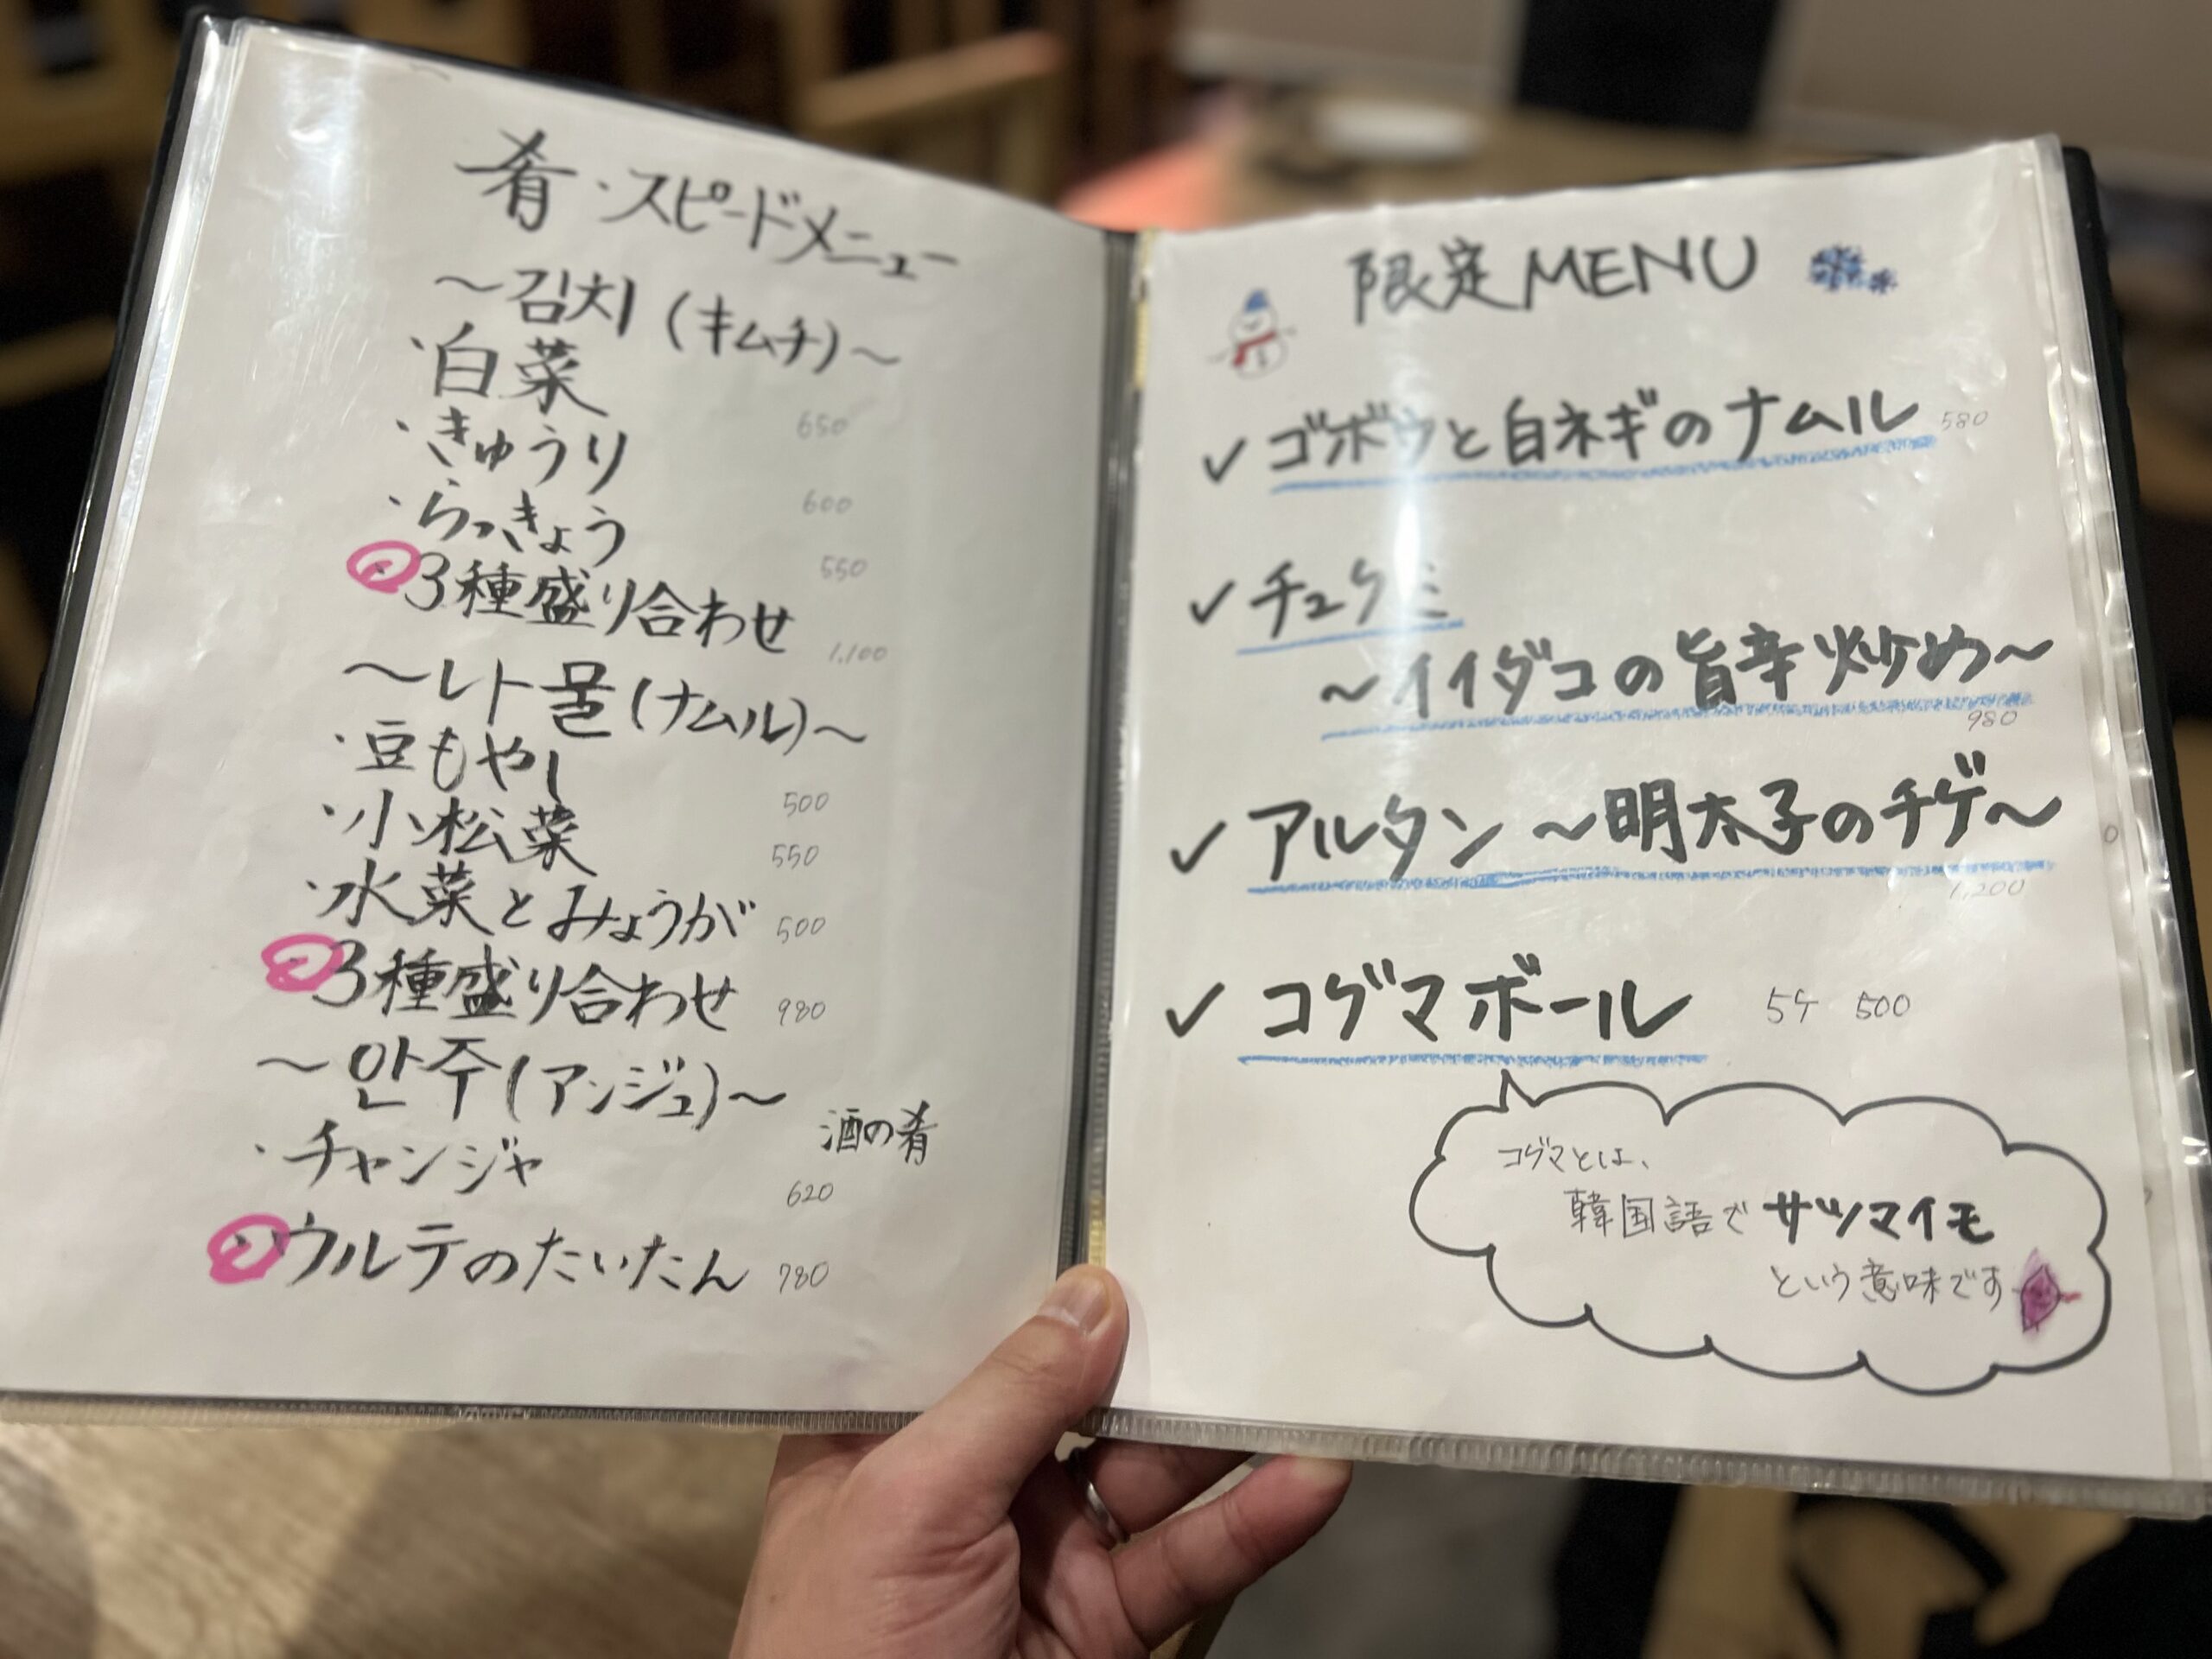 肴・スピードメニュー
～김치(キムチ)～
・白菜 650
・きゅうり 600
・らっきょう 550
・3種盛り合わせ 1,100
～나물(ナムル)～
・豆もやし 500
・小松菜 550
・水菜とみょうが 500
・3種盛り合わせ 980
～안주(アンジュ)～ 酒の肴
・チャンジャ 620
・ウルテのたいたん 780
限定MENU
✓ ゴボウと白ネギのナムル 580
✓ チュクミ
～イイダコの旨辛炒め～ 980
✓ アルタン～明太子のチゲ～ 1,200
✓ コグマボール 5ケ 500
コグマとは、
韓国語でサツマイモ
という意味です